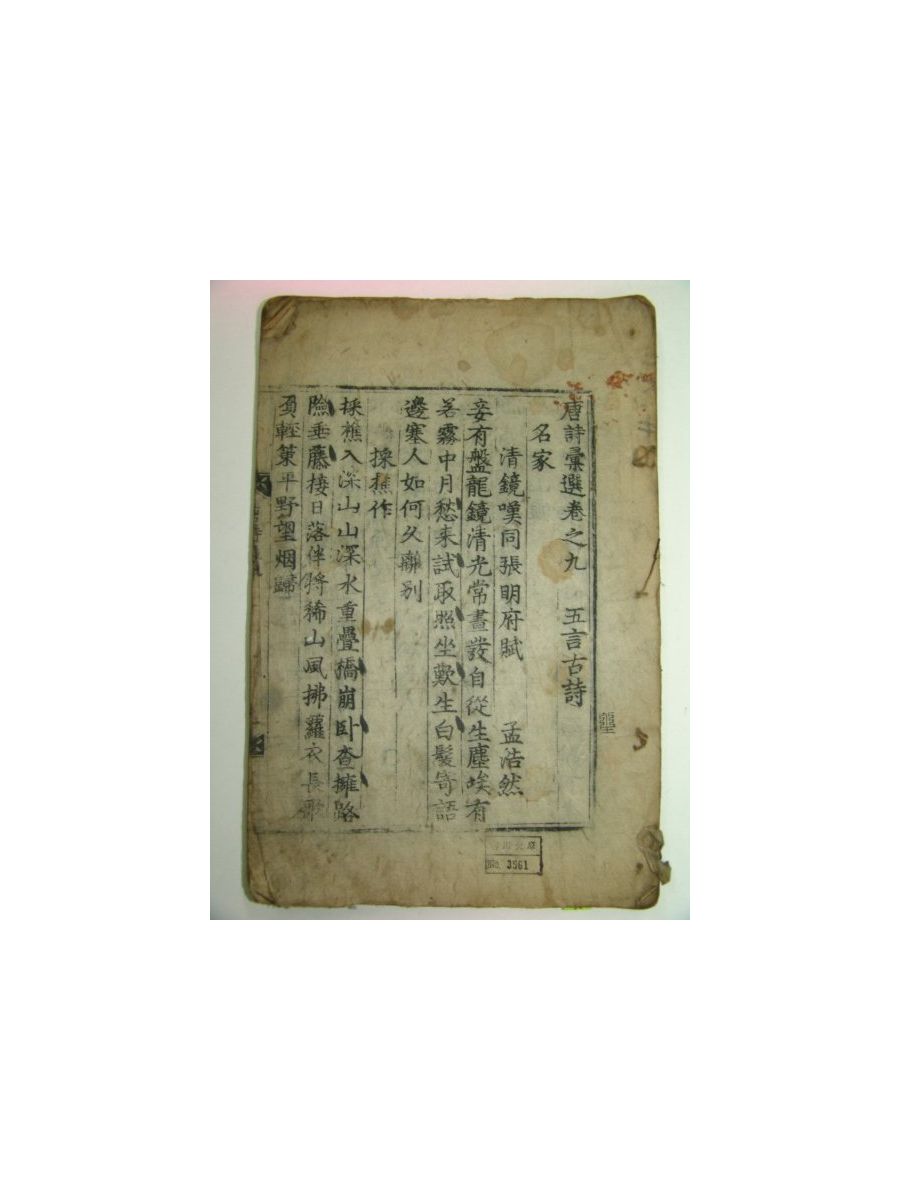 唐詩彙選卷之九 五言古詩
名家
清鏡嘆同張明府賦 孟浩然
妾有盤龍鏡清光常晝發自從生塵埃有
若霧中月愁来試取照坐歎生白髮寄語
邊塞人如何久離别
採樵作
採樵入深山山深水重疊橋崩卧查擁路
險垂藤接日落伴將稀山風拂蘿衣長歌
負輕策平野望烟歸
No. 3561